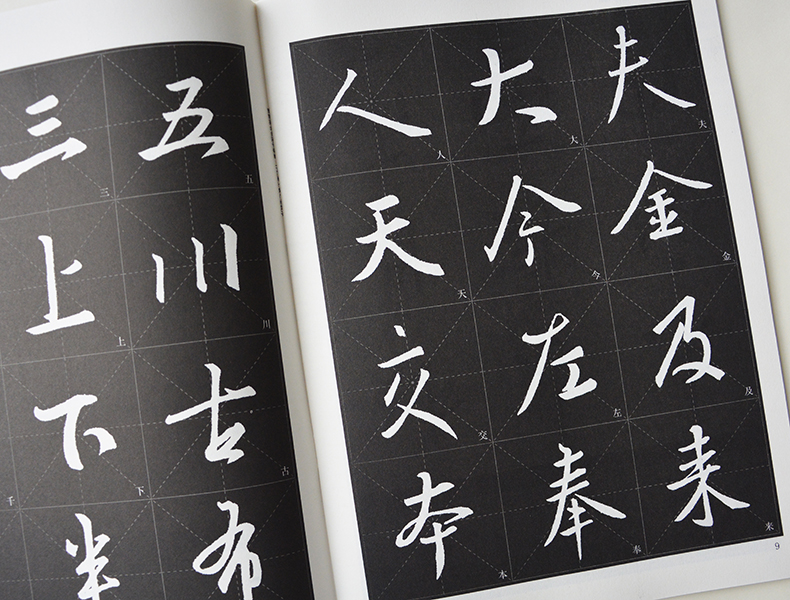 三 五
三 五
上 川
上 川
下 古
千 下 古
半 布
人 大 夫
人 大 夫
天 今 金
天 今 金
交 左 及
交 左 及
本 奉 来
本 奉 来
9